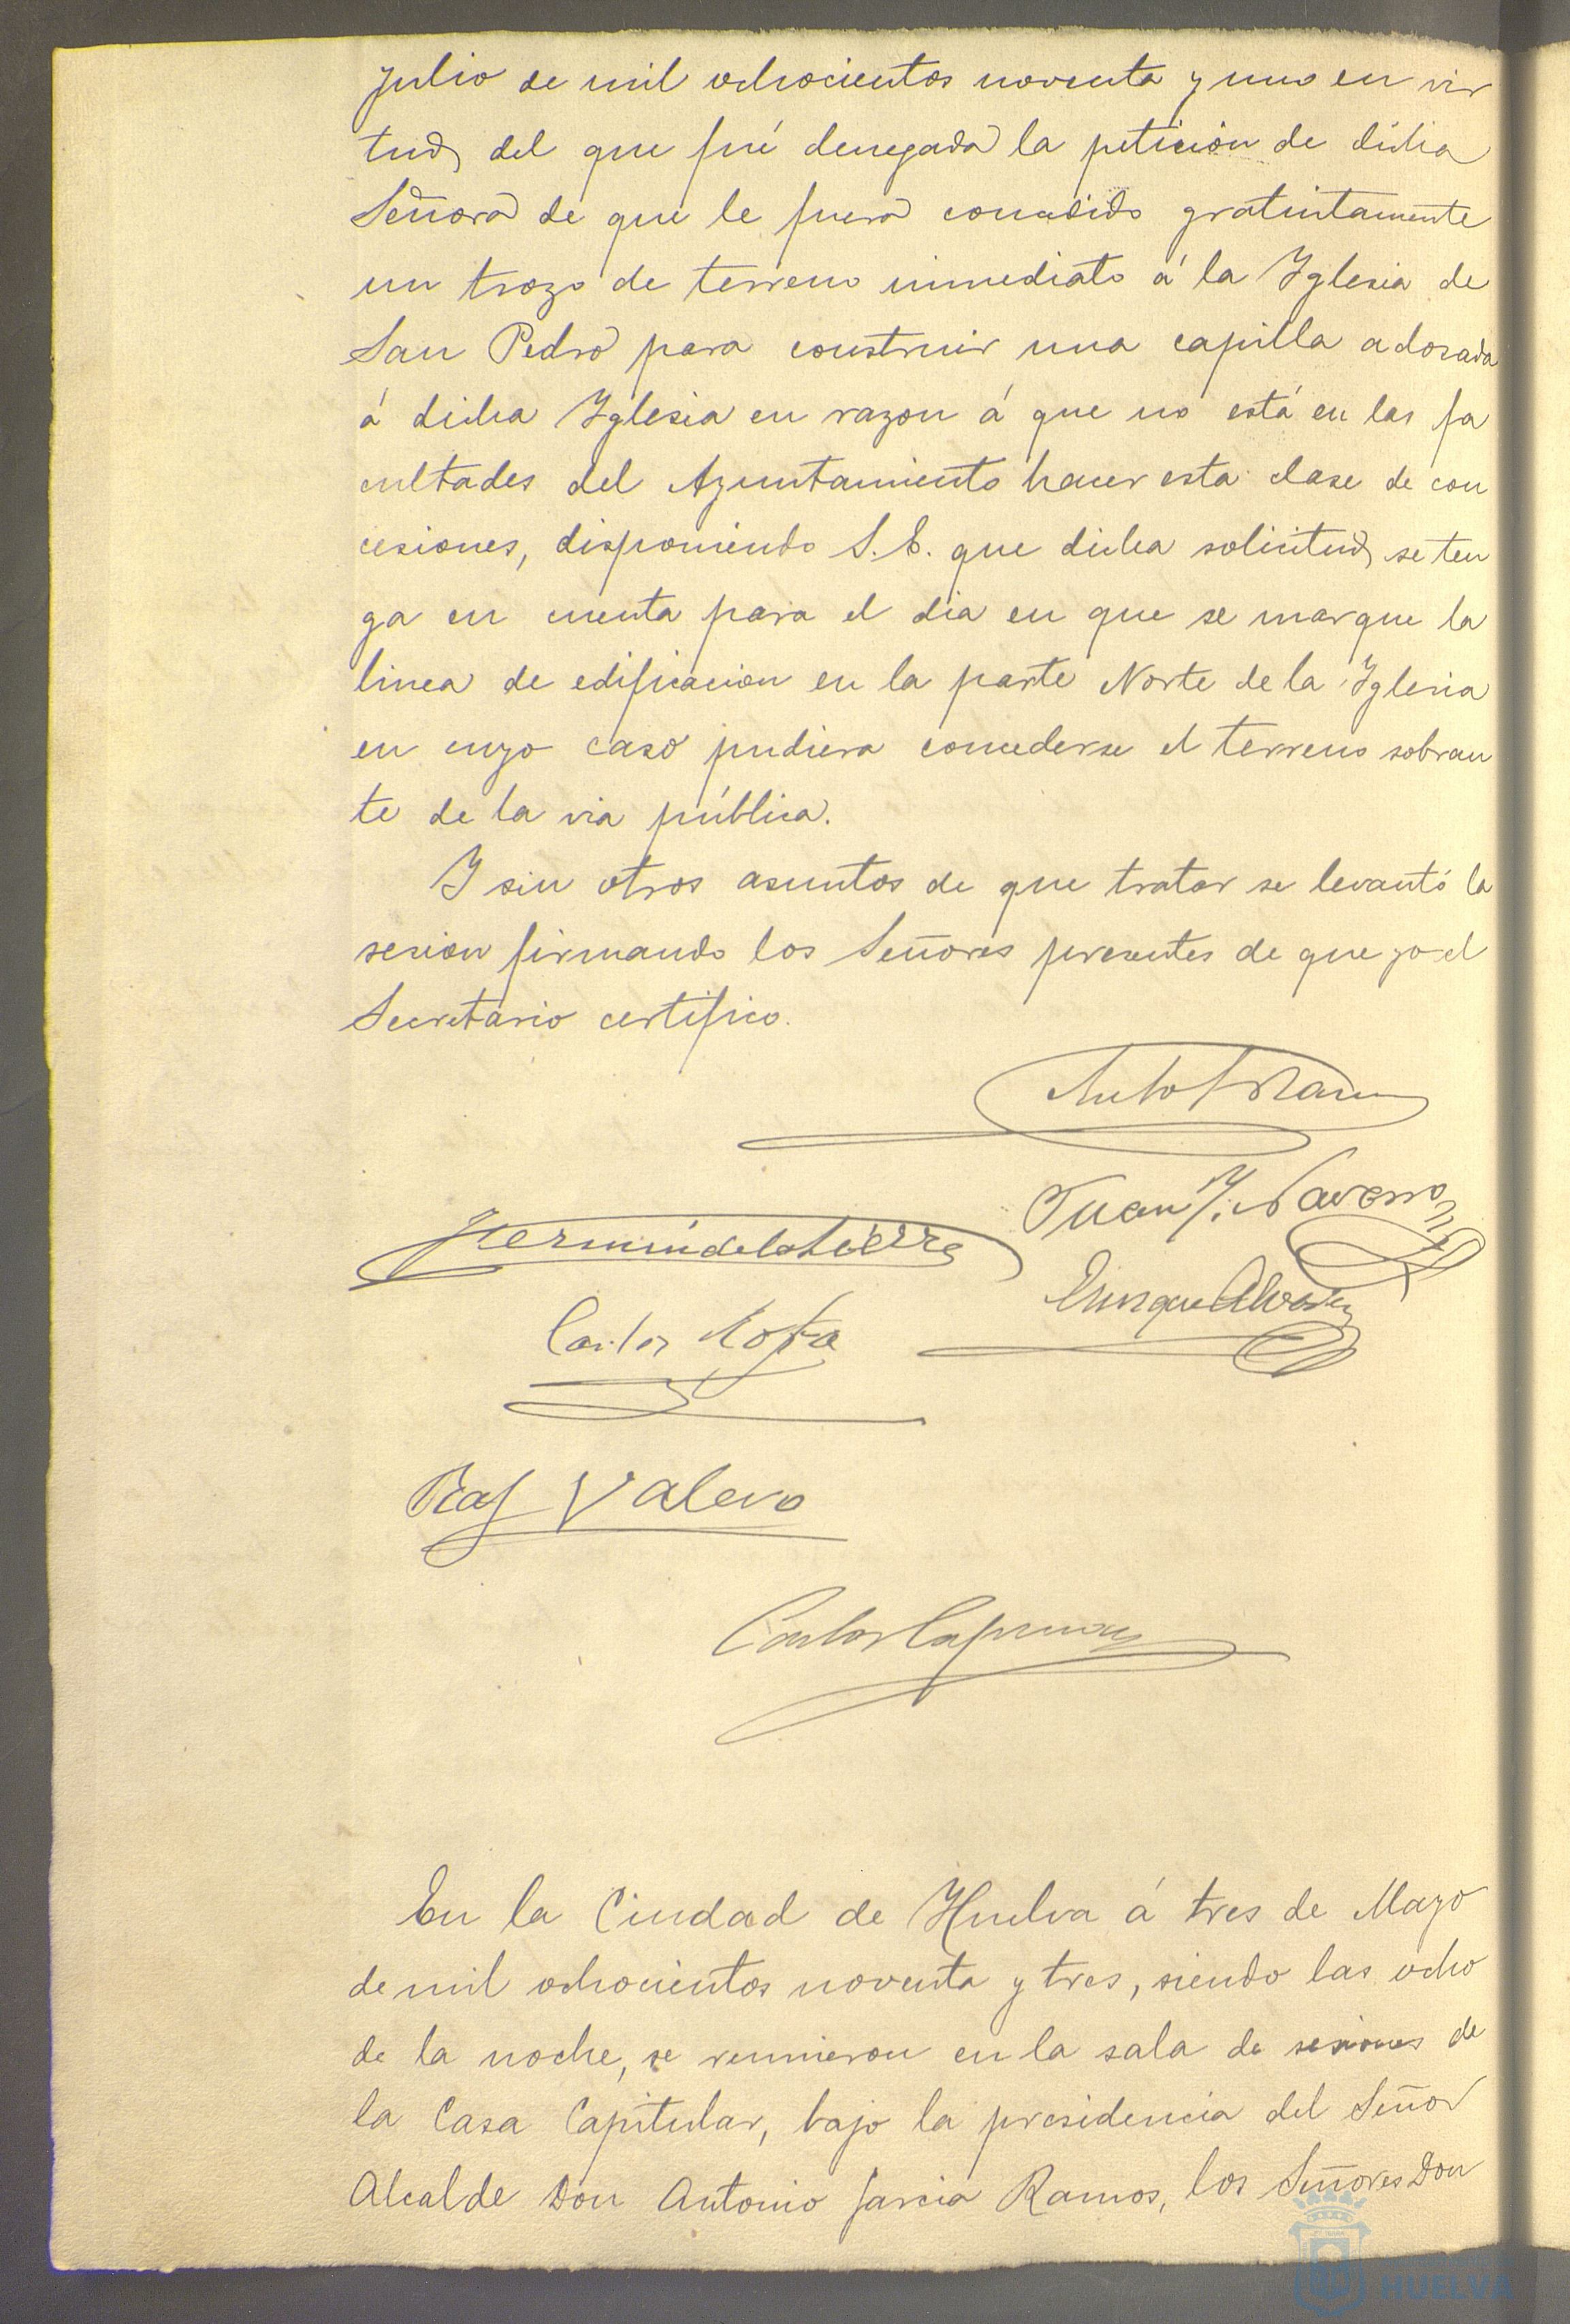 Julio de mil ochocientos noventa y uno en vir
tud, del que fué denegada la petición de dicha
Señora de que le fuera concedido gratuitamente
un trozo de terreno inmediato á la Yglesia de
San Pedro para construir una capilla adosada
á dicha Yglesia en razon á que no está en las fa
cultades del Ayuntamiento hacer esta clase de con
cesiones, disponiendo S. E. que dicha solicitud, se ten
ga en cuenta para el dia en que se marque la
linea de edificacion en la parte Norte de la Yglesia
en cuyo caso pudiera concederse el terreno sobran
te de la via pública.
Y sin otros asuntos de que tratar se levantó la
sesion firmando los Señores presentes de que yo el
Secretario certifico.
Juan J. Navarro
Fermin de la Sierra
Enrique Alvarez
Carlos
Raf Valero
Carlos
En la Ciudad de Huelva á tres de Mayo
de mil ochocientos noventa y tres, siendo las ocho
de la noche, se reunieron en la sala de sesiones de
la Casa Capitular, bajo la presidencia del Señor
Alcalde Don Antonio Garcia Ramos, los Señores Don
HUELVA